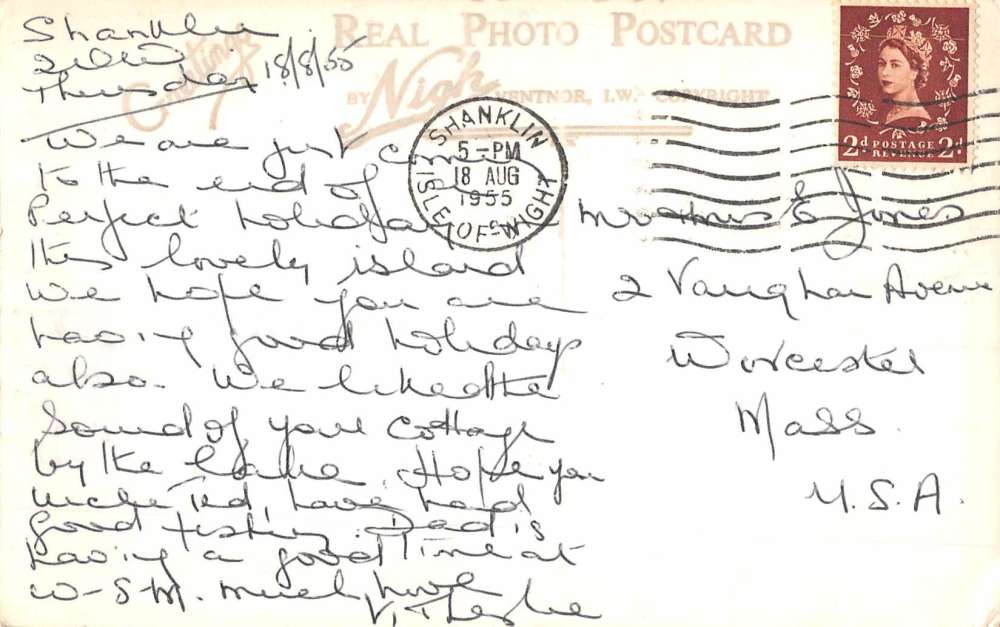 Shanklin
I.O.W
Thursday 18/8/55
Greetings
REAL PHOTO POSTCARD
BY Nigh VENTNOR, I.W. COPYRIGHT
SHANKLIN
5-PM
18 AUG
1955
ISLE OF WIGHT
2d POSTAGE 2d
REVENUE
We are just coming
to the end of a
Perfect holiday
this lovely island
We hope you are
having good holidays
also. We liked the
Sound of your Cottage
by the Lake. Hope you
Uncle Ted, have had
good fishing. Dad is
having a good time at
W-S-M. much love
V, + Leslie
Mr and Mrs E Jones
2 Vaughan Avenue
Worcester
Mass
U.S.A.